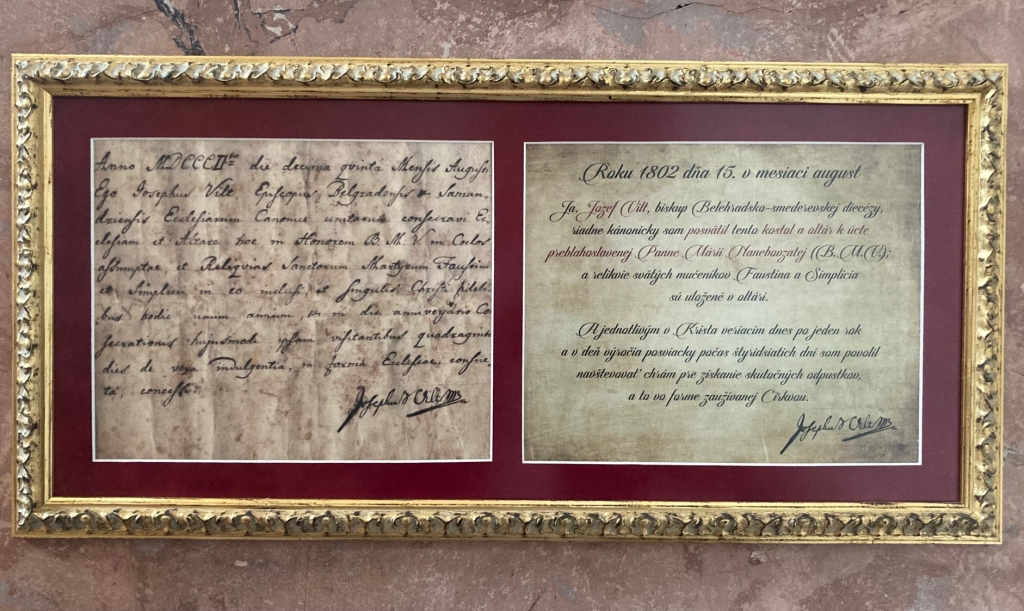 Anno MDCCCII do die decima qvinta Mensis Augusti
Ego Josephus Vilt, Episcopus Belgradensis et Saman-
driensis Ecclesiarum Canonice unitarum consecravi Ec-
clesiam et Altare hoc in Honorem B. M. V. in Coelos
assumptae, et Reliqvias Sanctorum Martyrum Faustini
et Simplicii in eo inclusi, et singulis Christi fideli-
bus hodie unum annum, et in die anniversario Con
secrationis hujusmodi ipsam visitantibus quadraginta
dies de vera indulgentia, in forma Ecclesiae consue-
ta, concessi.
Josephus Vilt
Roku 1802 dňa 15. v mesiaci august
Ja, Jozef Vilt, biskup Belehradsko-smederevskej diecézy,
riadne kánonicky som posvätil tento kostol a oltár k úcte
preblahoslavenej Panne Márii Nanebovzatej (B. M.V.);
a relikvie svätých mučeníkov Faustina a Simplicia
sú uložené v oltári.
A jednotlivým v Krista veriacim dnes po jeden rok
a v deň výročia posviacky počas štyridsiatich dní som povolil
navštevovať chrám pre získanie skutočných odpustkov,
a to vo forme zaužívanej Cirkvou.
Josephus Vilt